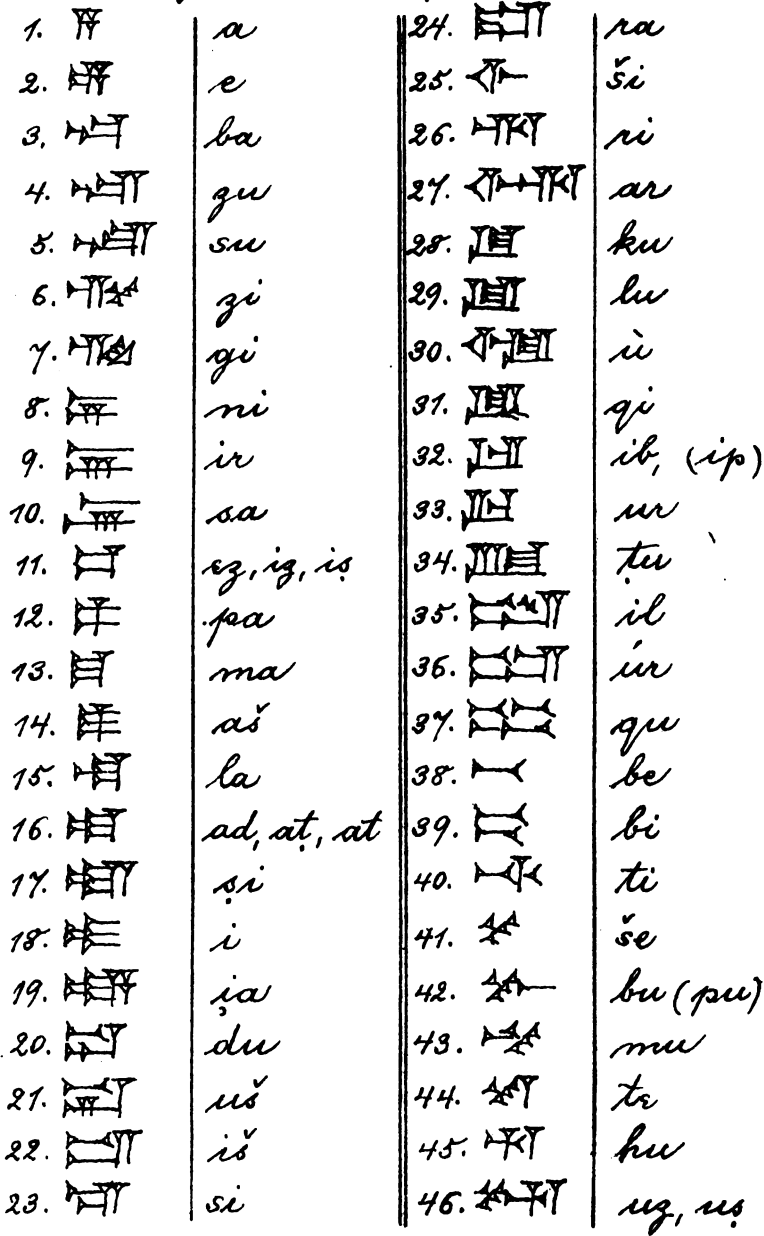 1. 𒀀 a
2. 𒂊 e
3. 𒁀 ba
4. 𒍪 zu
5. 𒋢 su
6. 𒍣 zi
7. 𒄀 gi
8. 𒉌 ni
9. 𒅕 ir
10. 𒊓 sa
11. 𒄑 ez, iz, iṣ
12. 𒉺 pa
13. 𒈠 ma
14. 𒀾 aš
15. 𒆷 la
16. 𒀜 ad, aṭ, at
17. 𒍢 ṣi
18. 𒄿 i
19. 𒅀 i̯a
20. 𒁺 du
21. 𒍑 uš
22. 𒅖 iš
23. 𒋛 si
24. 𒊏 ra
25. 𒅆 ši
26. 𒊑 ri
27. 𒅈 ar
28. 𒆪 ku
29. 𒇻 lu
30. 𒅇 ù
31. 𒆥 qi
32. 𒅁 ib, (ip)
33. 𒌨 ur
34. 𒂅 ṭu
35. 𒅋 il
36. 𒌫 úr
37. 𒄣 qu
38. 𒁁 be
39. 𒁉 bi
40. 𒋾 ti
41. 𒊺 še
42. 𒁍 bu (pu)
43. 𒈬 mu
44. 𒋼 te
45. 𒄷 hu
46. 𒊻 uz, uṣ